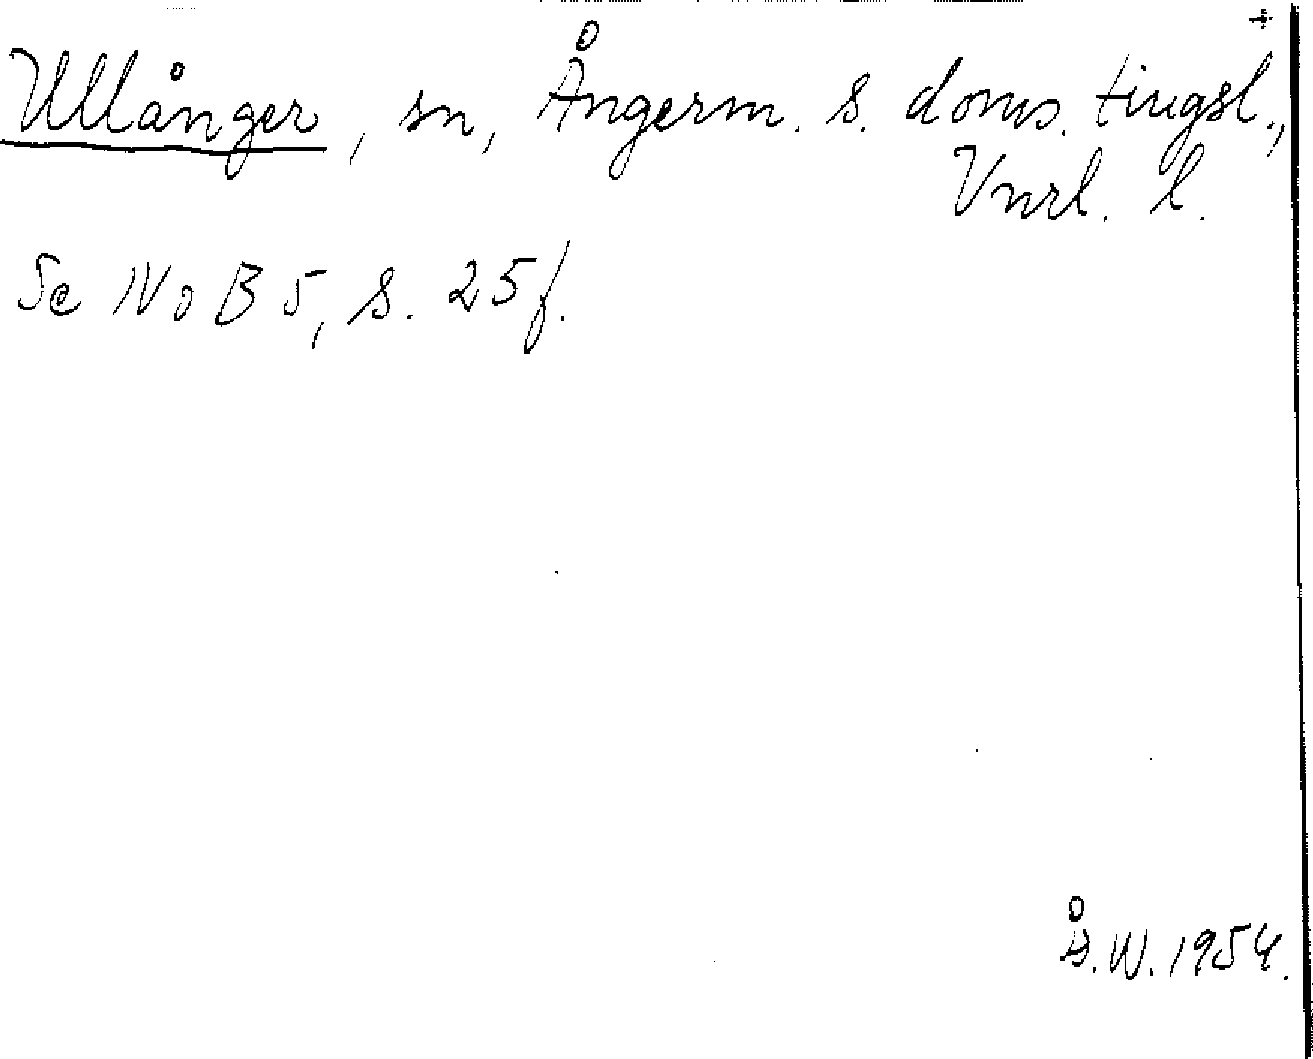 +
Ullånger, sn, Ångerm. s. doms. tingsl.,
Vnrl. l.
Se NoB 5, s. 25 f.
Å.W. 1954.